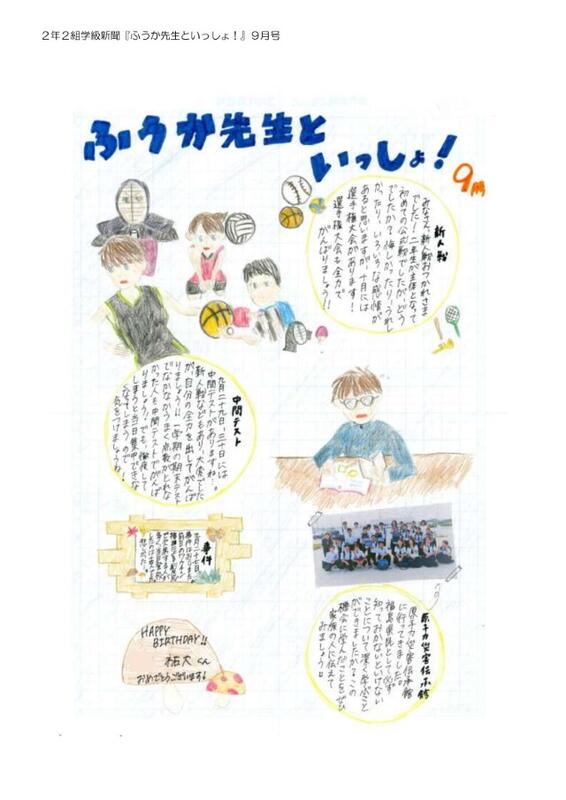 2年2組学級新聞『ふうか先生といっしょ！』9月号
ふうか先生と
いっしょ！
9月
新人戦
みなさん、新人戦おつかれさま
でした！二年生が主体となって
初めての公式戦でしたが、どう
でしたか？悔しかったり、うれし
かったり、いろいろな感情が
あると思いますが、十月には
選手権大会があります！
選手権大会も全力で
がんばりましょう！！
中間テスト
九月二十九日、三十日には
中間テストがありますね…。
新人戦などもあり、大変でした
が、自分の全力を出してがんば
りましょう！！一学期の期末テスト
でなかなかうまく点数がとれな
かった人も中間テストでがんば
りましょう？でも、徹夜して
しまうと当日集中できな
くなってしまうので
気をつけましょうね！
事件
九月二十七日、
事件は
HAPPY
BIRTHDAY!!
拓大くん
おめでとうございます！
原子力災害伝承館
原子力災害伝承館
に行ってきました。
福島県民として必ず
知っておかないといけない
ことについて深く学ぶこと
ができましたか？この
機会に学んだことをぜひ
家族の人に伝えて
みましょう。